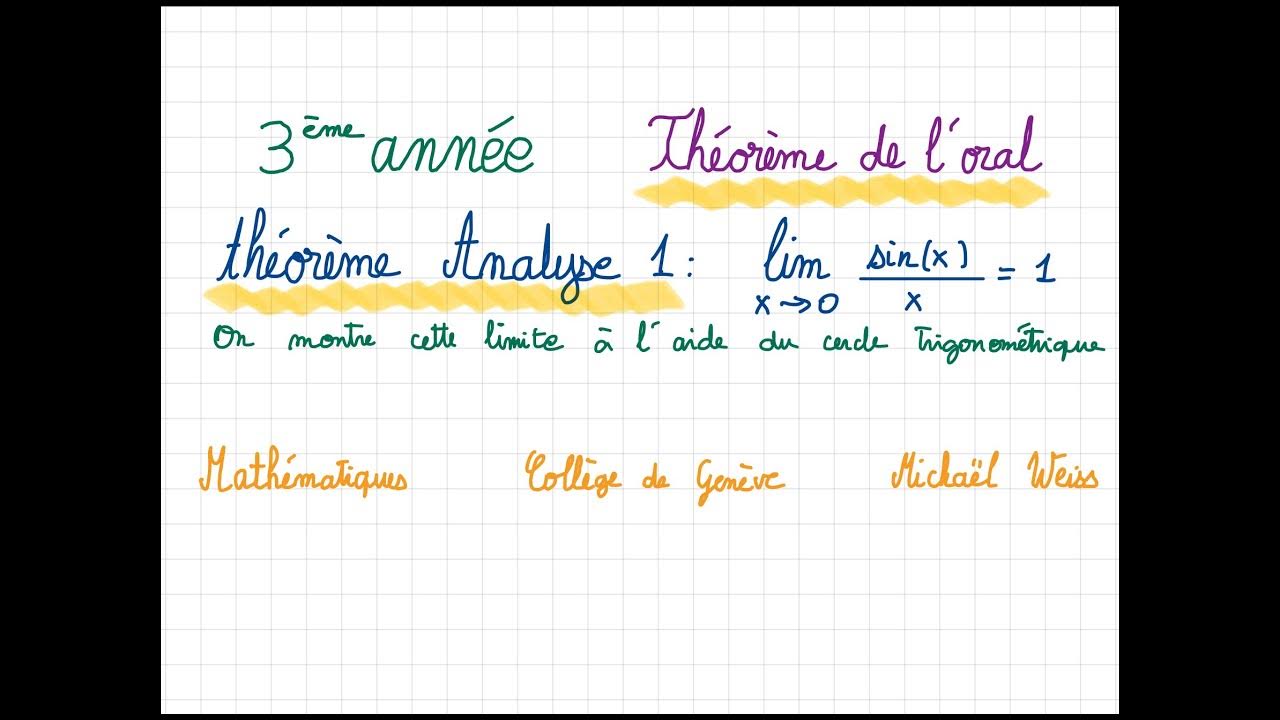 3ème année Théorème de l'oral
théorème Analyse 1 : lim x→0 sin(x)/x = 1
On montre cette limite à l'aide du cercle trigonométrique
Mathématiques Collège de Genève Mickaël Weiss